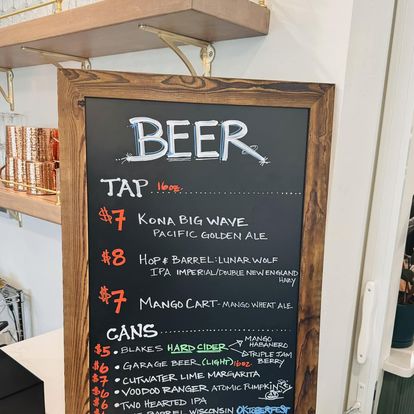 BEER
TAP 16oz.
$7 KONA BIG WAVE
PACIFIC GOLDEN ALE
$8 HOP & BARREL: LUNAR WOLF
IPA IMPERIAL/DOUBLE NEW ENGLAND
HAZY
$7 MANGO CART - MANGO WHEAT ALE
CANS
$5 • BLAKES HARD CIDER MANGO HABANERO
TRIPLE JAM BERRY
$6 • GARAGE BEER (LIGHT) 16oz
$7 • CUTWATER LIME MARGARITA
$6 • VOODOO RANGER ATOMIC PUMPKIN
$6 • TWO HEARTED IPA
BARREL WISCONSIN OKTOBERFEST